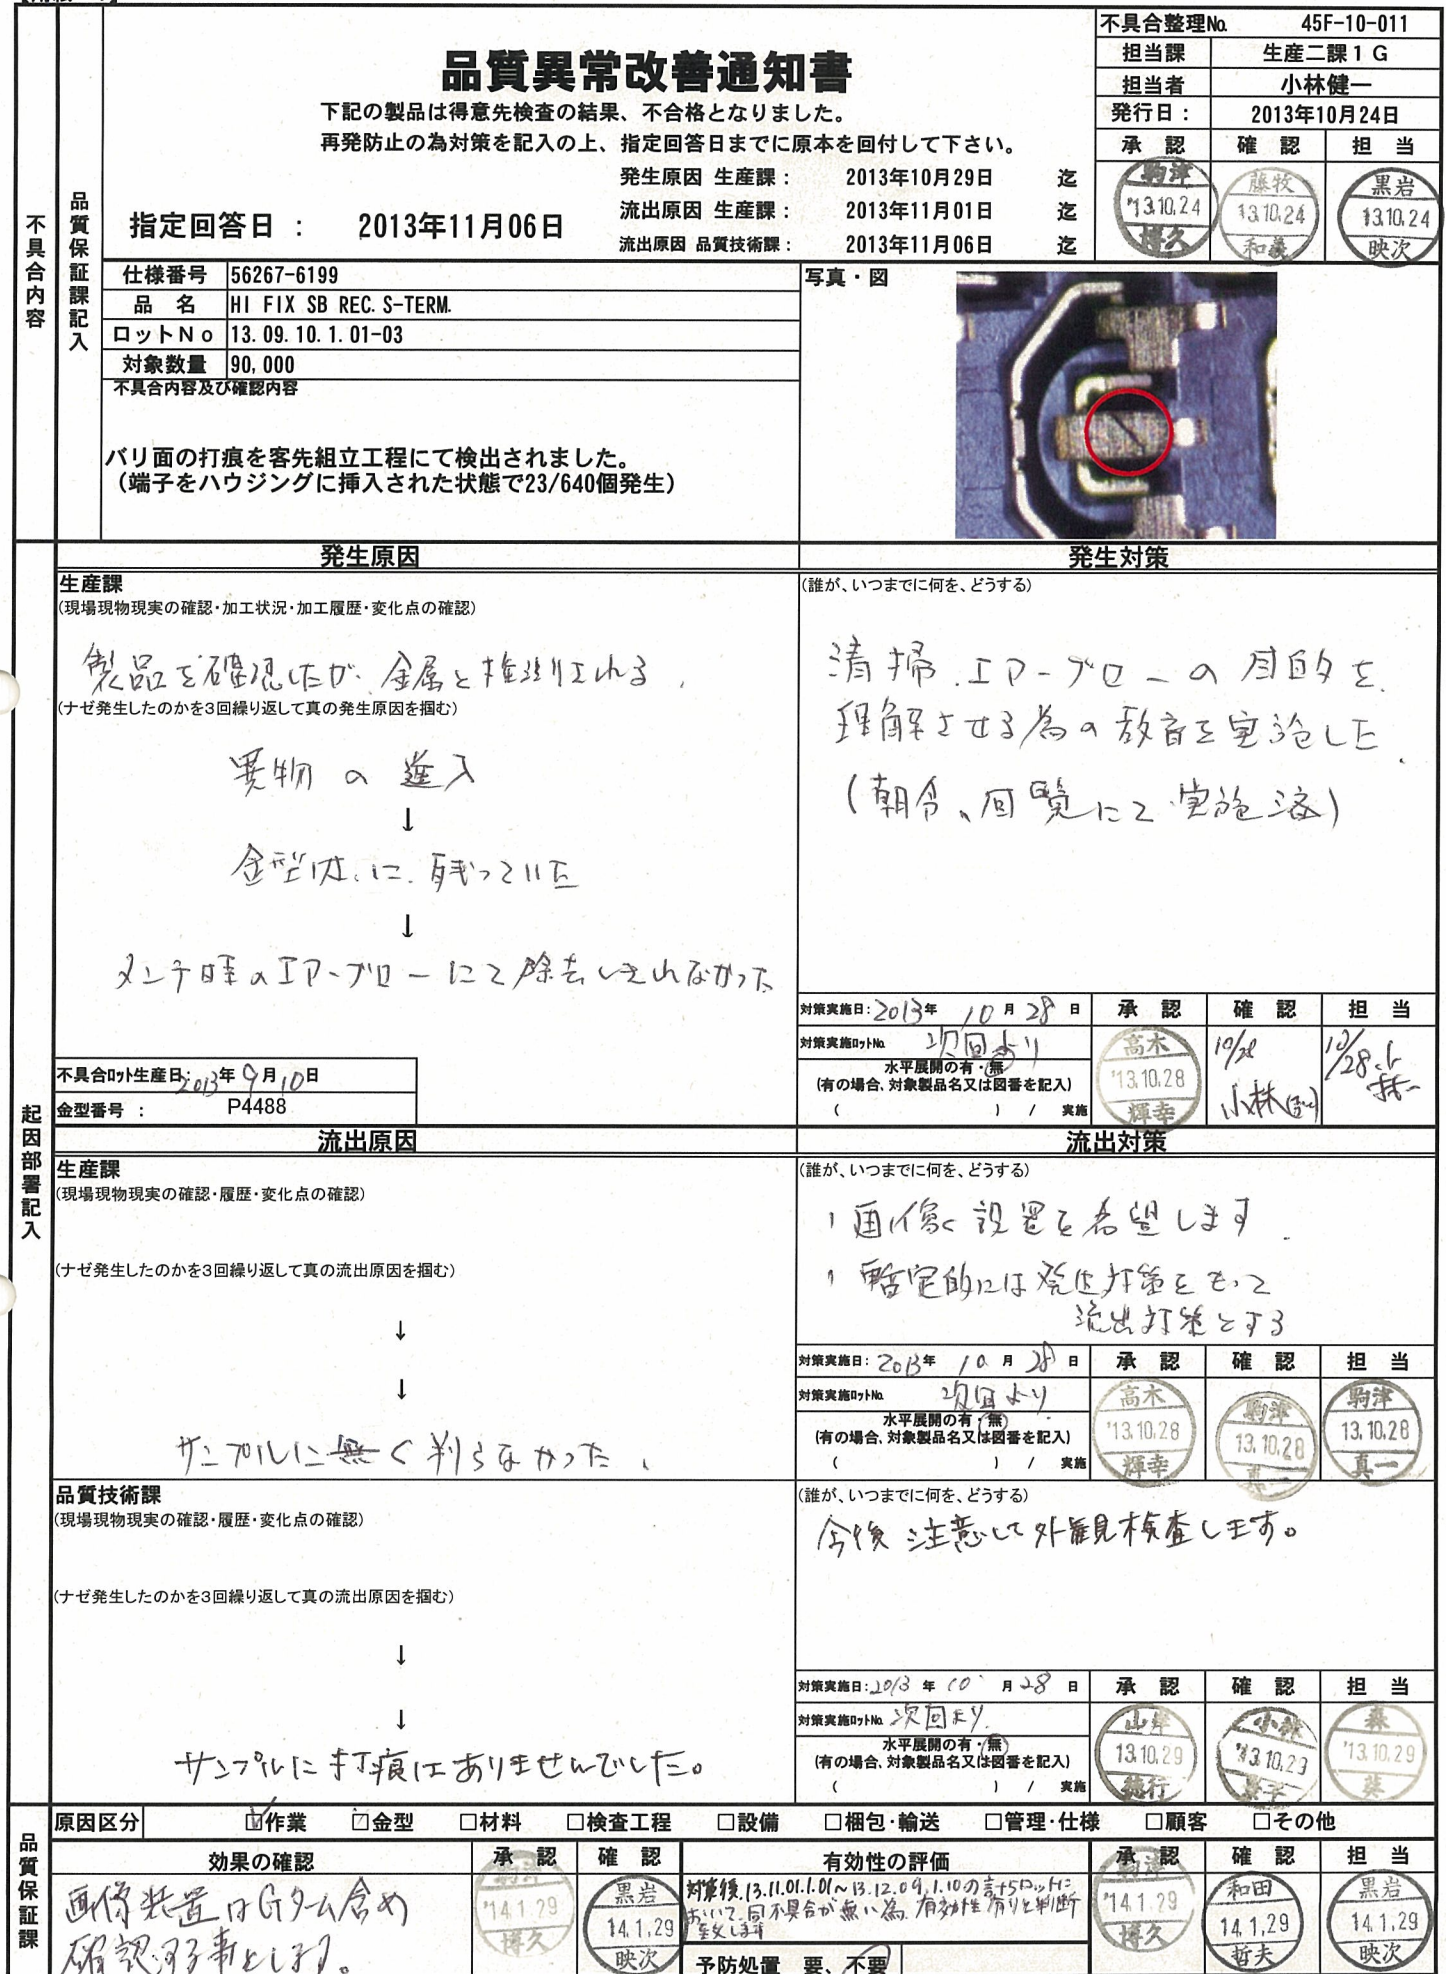 不具合整理No. 45F-10-011
担当課 生産二課1G
担当者 小林健一
発行日： 2013年10月24日
承 認 確 認 担 当
駒津 '13.10.24 博久
藤牧 '13.10.24
黒岩 '13.10.24 映次
品質異常改善通知書
下記の製品は得意先検査の結果、不合格となりました。
再発防止の為対策を記入の上、指定回答日までに原本を回付して下さい。
発生原因 生産課： 2013年10月29日 迄
流出原因 生産課： 2013年11月01日 迄
流出原因 品質技術課： 2013年11月06日 迄
指定回答日 ： 2013年11月06日
不具合内容
品質保証課記入
仕様番号 56267-6199
品 名 HI FIX SB REC. S-TERM.
ロットNo 13.09.10.1.01-03
対象数量 90,000
写真・図
不具合内容及び確認内容
バリ面の打痕を客先組立工程にて検出されました。
（端子をハウジングに挿入された状態で23/640個発生）
起因部署記入
発生原因
生産課
(現場現物現実の確認・加工状況・加工履歴・変化点の確認)
製品を確認したが、金属と推測される
(ナゼ発生したのかを3回繰り返して真の発生原因を掴む)
異物の進入
↓
金型内に残っていた
↓
メンテ時のエアーブローにて除去しきれなかった
不具合ロット生産日: 2013年9月10日
金型番号 ： P4488
発生対策
(誰が、いつまでに何を、どうする)
清掃、エアーブローの目的を
理解させる為の教育を実施した
(朝会、回覧にて実施済)
対策実施日: 2013年 10月 28日
対策実施ロットNo. 次回より
水平展開の有・無
(有の場合、対象製品名又は図番を記入)
( ) / 実施
承 認 確 認 担 当
高木 '13.10.28 輝幸
10/28 小林
10/28
流出原因
生産課
(現場現物現実の確認・履歴・変化点の確認)
(ナゼ発生したのかを3回繰り返して真の流出原因を掴む)
↓
↓
サンプルに無く判らなかった、
流出対策
(誰が、いつまでに何を、どうする)
、画像設置を希望します
、暫定的には発生対策をもって
流出対策とする
対策実施日: 2013年 10月 28日
対策実施ロットNo. 次回より
水平展開の有・無
(有の場合、対象製品名又は図番を記入)
( ) / 実施
承 認 確 認 担 当
高木 '13.10.28 輝幸
駒津 13.10.28 真一
駒津 13.10.28 真一
品質技術課
(現場現物現実の確認・履歴・変化点の確認)
(ナゼ発生したのかを3回繰り返して真の流出原因を掴む)
↓
↓
サンプルに打痕はありませんでした。
(誰が、いつまでに何を、どうする)
今後注意して外観検査します。
対策実施日: 2013年 10月 28日
対策実施ロットNo. 次回より
水平展開の有・無
(有の場合、対象製品名又は図番を記入)
( ) / 実施
承 認 確 認 担 当
山岸 13.10.29
小林 '13.10.29
森 '13.10.29
品質保証課
原因区分 □作業 □金型 □材料 □検査工程 □設備 □梱包・輸送 □管理・仕様 □顧客 □その他
効果の確認 承 認 確 認
画像装置はGターム含め
確認する事とします。
駒津 '14.1.29 博久
黒岩 14.1.29 映次
有効性の評価 承 認 確 認 担 当
対策後、13.11.01.1.01～13.12.09.1.10の計5ロットに
おいて、同不具合が無い為、有効性有りと判断
致します
駒津 '14.1.29 博久
和田 14.1.29 哲夫
黒岩 14.1.29 映次
予防処置 要、不要